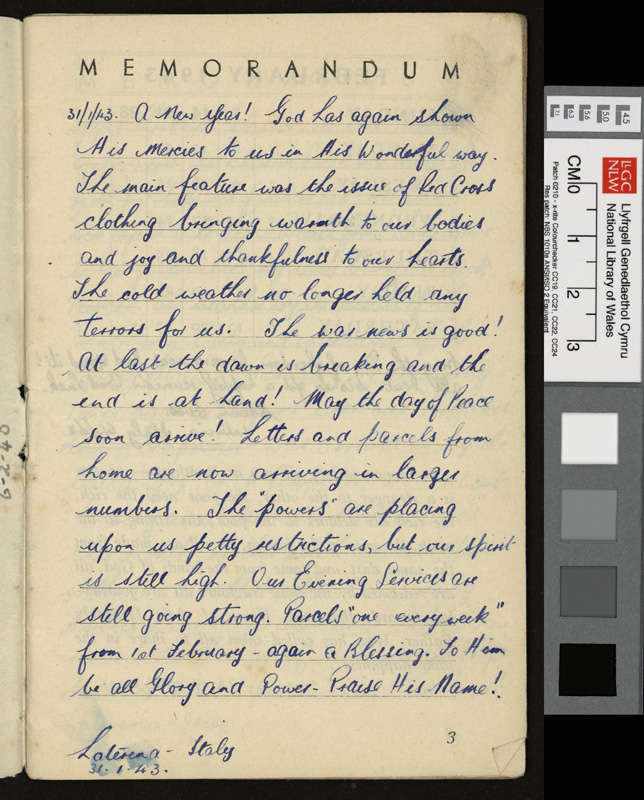 MEMORANDUM
31/1/43. A New Year! God has again shown
His Mercies to us in His Wonderful way.
The main feature was the issue of Red Cross
clothing bringing warmth to our bodies
and joy and thankfulness to our hearts.
The cold weather no longer held any
terrors for us. The war news is good!
At last the dawn is breaking and the
end is at hand! May the day of Peace
soon arrive! Letters and parcels from
home are now arriving in larger
numbers. The "powers" are placing
upon us petty restrictions, but our spirit
is still high. Our Evening Services are
still going strong. Parcels "one every week"
from 1st February - again a Blessing. To Him
be all Glory and Power - Praise His Name!
Laterina - Italy
31.1.43.
3
6-2-40
LLGC
NLW
Llyfrgell Genedlaethol Cymru
National Library of Wales
CM 0 1 2 3
4.5
5.0
5.6
6.3
7.1
Patch 0210 - x-rite Colourchecker CC19, CC21, CC22, CC24
Res patch: NBS 1010a ANSI/ISO 2 Equivalent